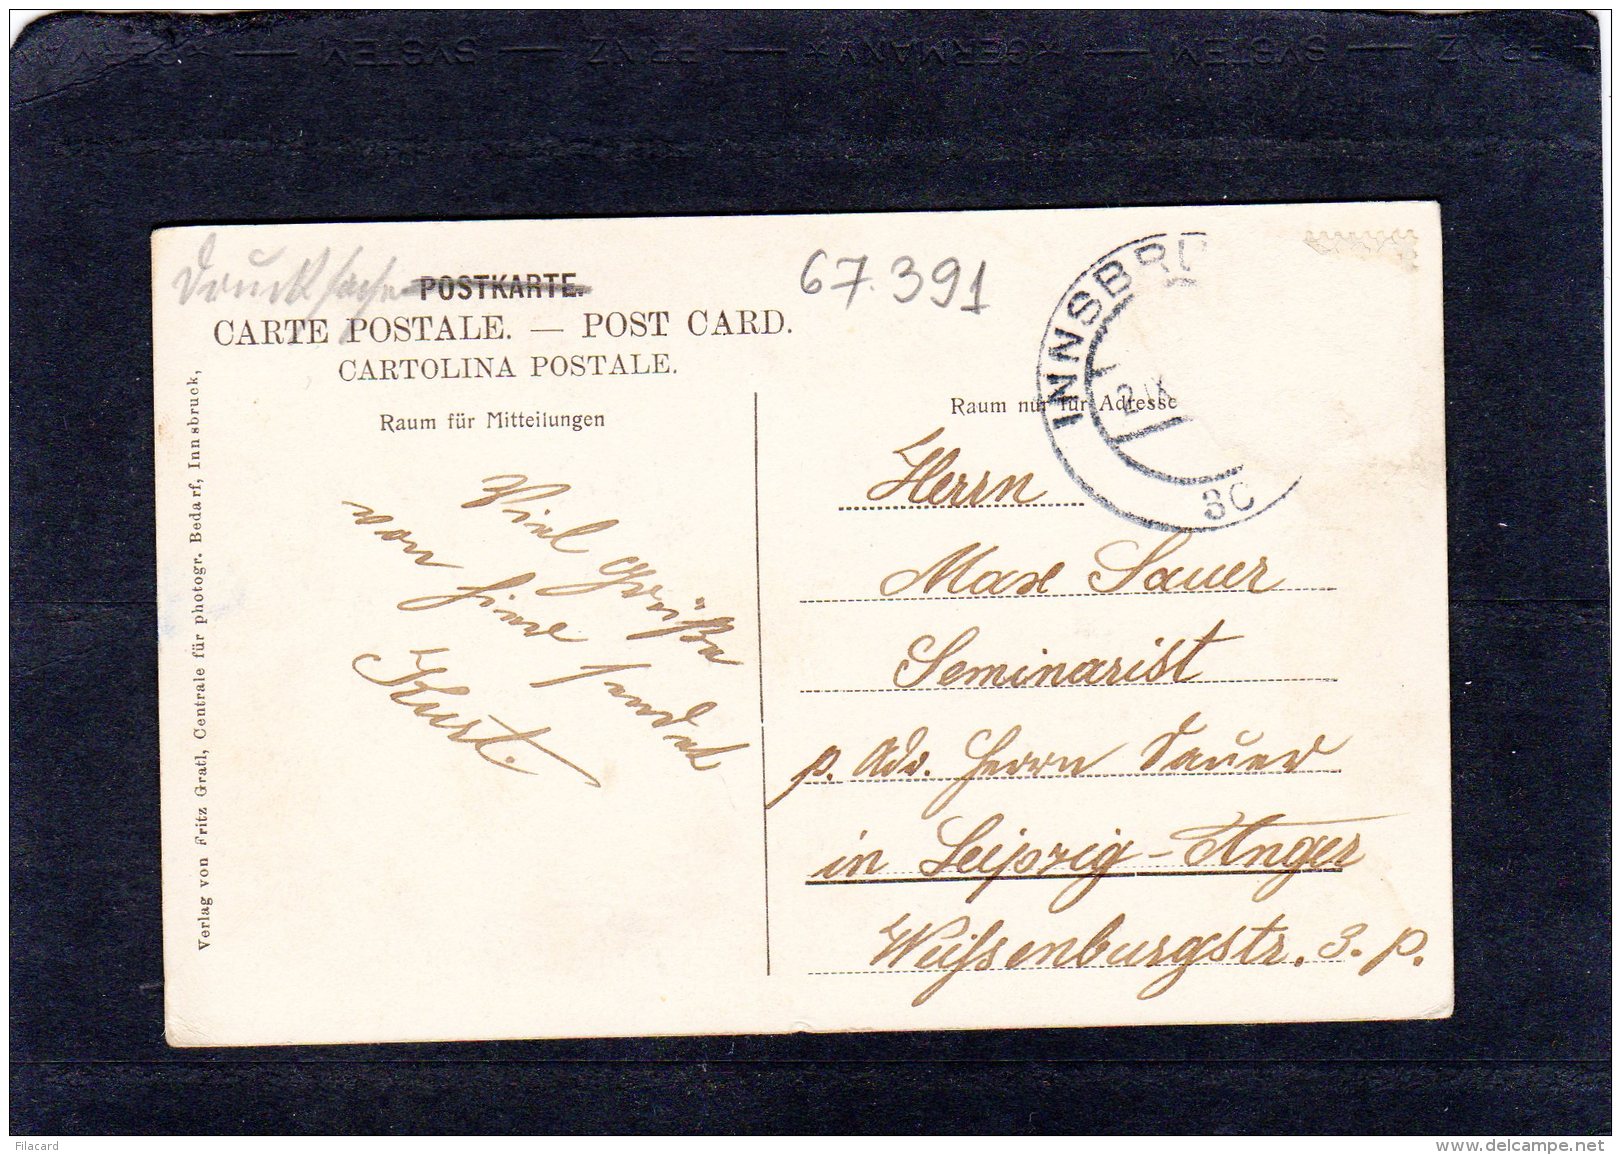 Drucksache
POSTKARTE.
67.391
CARTE POSTALE. — POST CARD.
CARTOLINA POSTALE.
Raum für Mitteilungen
Raum nur für Adresse
INNSBRU
2 IX
3c
Viel Grüße
von hier sendet
Kurt.
Herrn
Max Sauer
Seminarist
p. Adr. Herrn Sauer
in Leipzig-Anger
Weißenburgstr. 3. p.
Verlag von Fritz Gratl, Centrale für photogr. Bedarf, Innsbruck,
GERMANY
SYSTEM
Filacard
www.delcampe.net